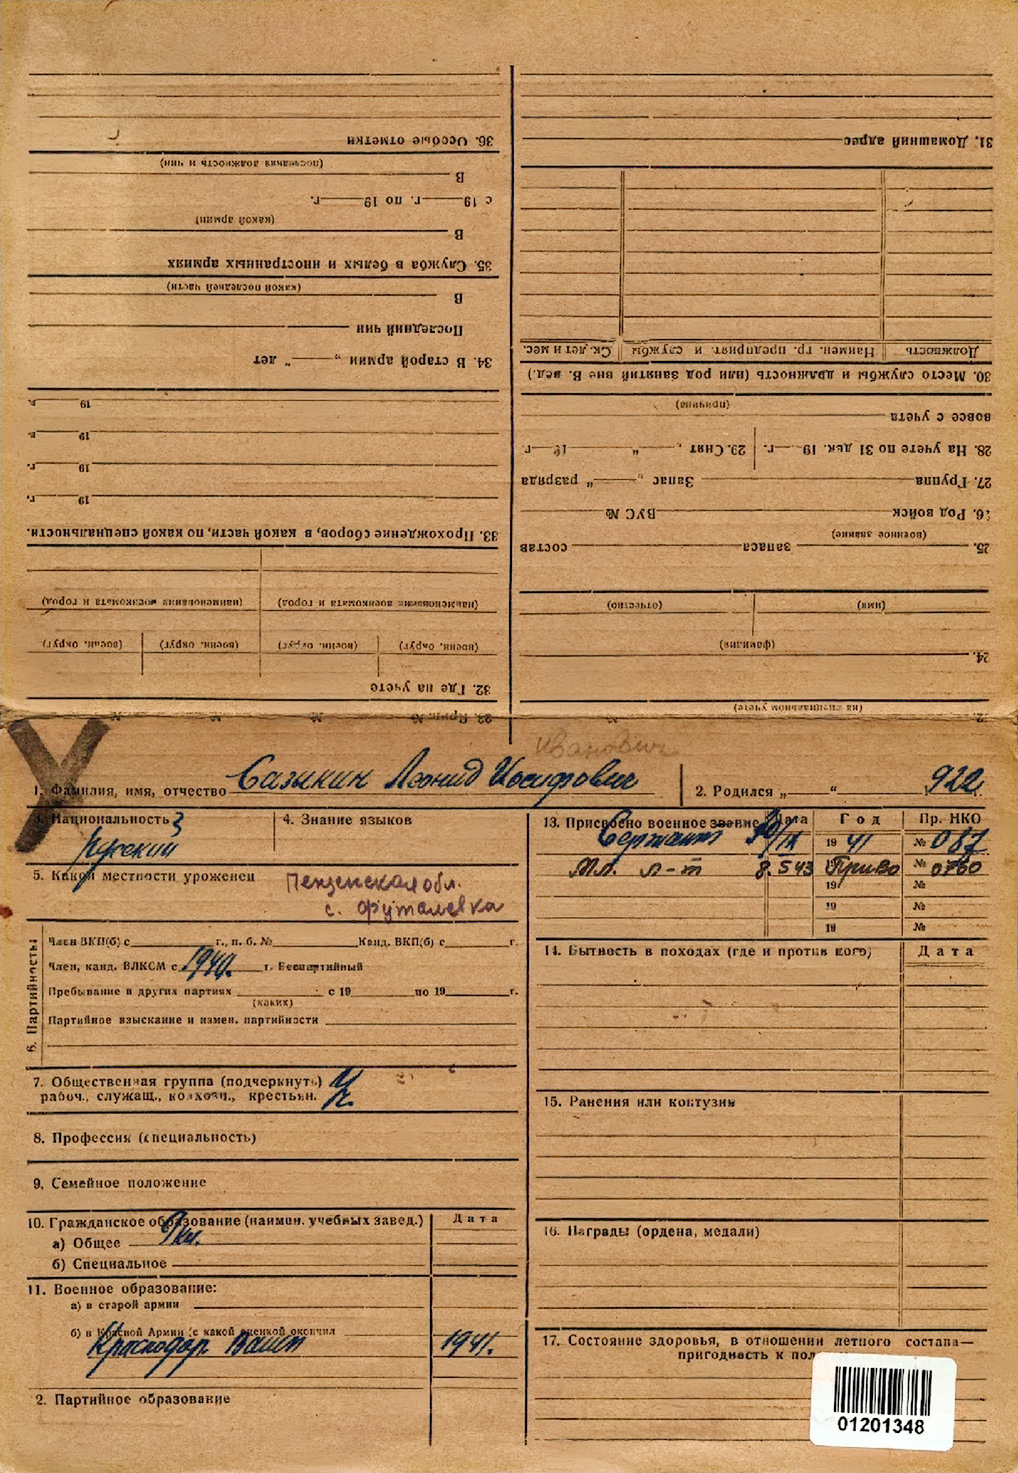 31. Домашний адрес
Должность Наимен. гр. предприят. и службы Ск. лет и мес.
30. Место службы и должность (или род занятий вне В. вед.)
(причина)
вовсе с учета
28. На учете по 31 дек. 19 г. 29. Снят „ “ 19 г.
27. Группа Запас „ “ разряда
26. Род войск ВУС №
(военное звание)
25. запаса состав
(имя) (отчество)
(фамилия)
24.
(на специальном учете) №
36. Особые отметки
(последняя должность и чин)
В
с 19 г. по 19 г.
(какой армии)
В
35. Служба в белых и иностранных армиях
(какой последней части)
В
Последний чин
34. В старой армии „ “ лет
19 г.
19 г.
19 г.
19 г.
33. Прохождение сборов, в какой части, по какой специальности.
(наименования военкомата и город) (наименования военкомата и город)
(военн. округ) (военн. округ) (военн. округ) (военн. округ)
32. Где на учете
23. Прип. № № № №
Иванович
1. Фамилия, имя, отчество Сазыкин Леонид Иосифович 2. Родился „ “ 922
3. Национальность
Русский
4. Знание языков
5. Какой местности уроженец Пензенская обл.
с. Футалевка
6. Партийность:
Член ВКП(б) с г., п. б. № Канд. ВКП(б) с г.
Член, канд. ВЛКСМ с 1940. г. Беспартийный
Пребывание в других партиях с 19 по 19 г.
(каких)
Партийное взыскание и измен. партийности
7. Общественная группа (подчеркнуть)
рабоч., служащ., колхозн., крестьян.
8. Профессия (специальность)
9. Семейное положение
10. Гражданское образование (наимен. учебных завед.) Дата
а) Общее 9 кл.
б) Специальное
11. Военное образование:
а) в старой армии
б) в Красной Армии (с какой оценкой окончил
Краснодар. ВАШП 1941.
2. Партийное образование
13. Присвоено военное звание Дата Год Пр. НКО
Сержант 19 41 № 087
Мл. л-т 8.5 43 Приво № 0760
19 №
19 №
19 №
14. Бытность в походах (где и против кого) Дата
15. Ранения или контузии
16. Награды (ордена, медали)
17. Состояние здоровья, в отношении летного состава—
пригодность к пол
01201348